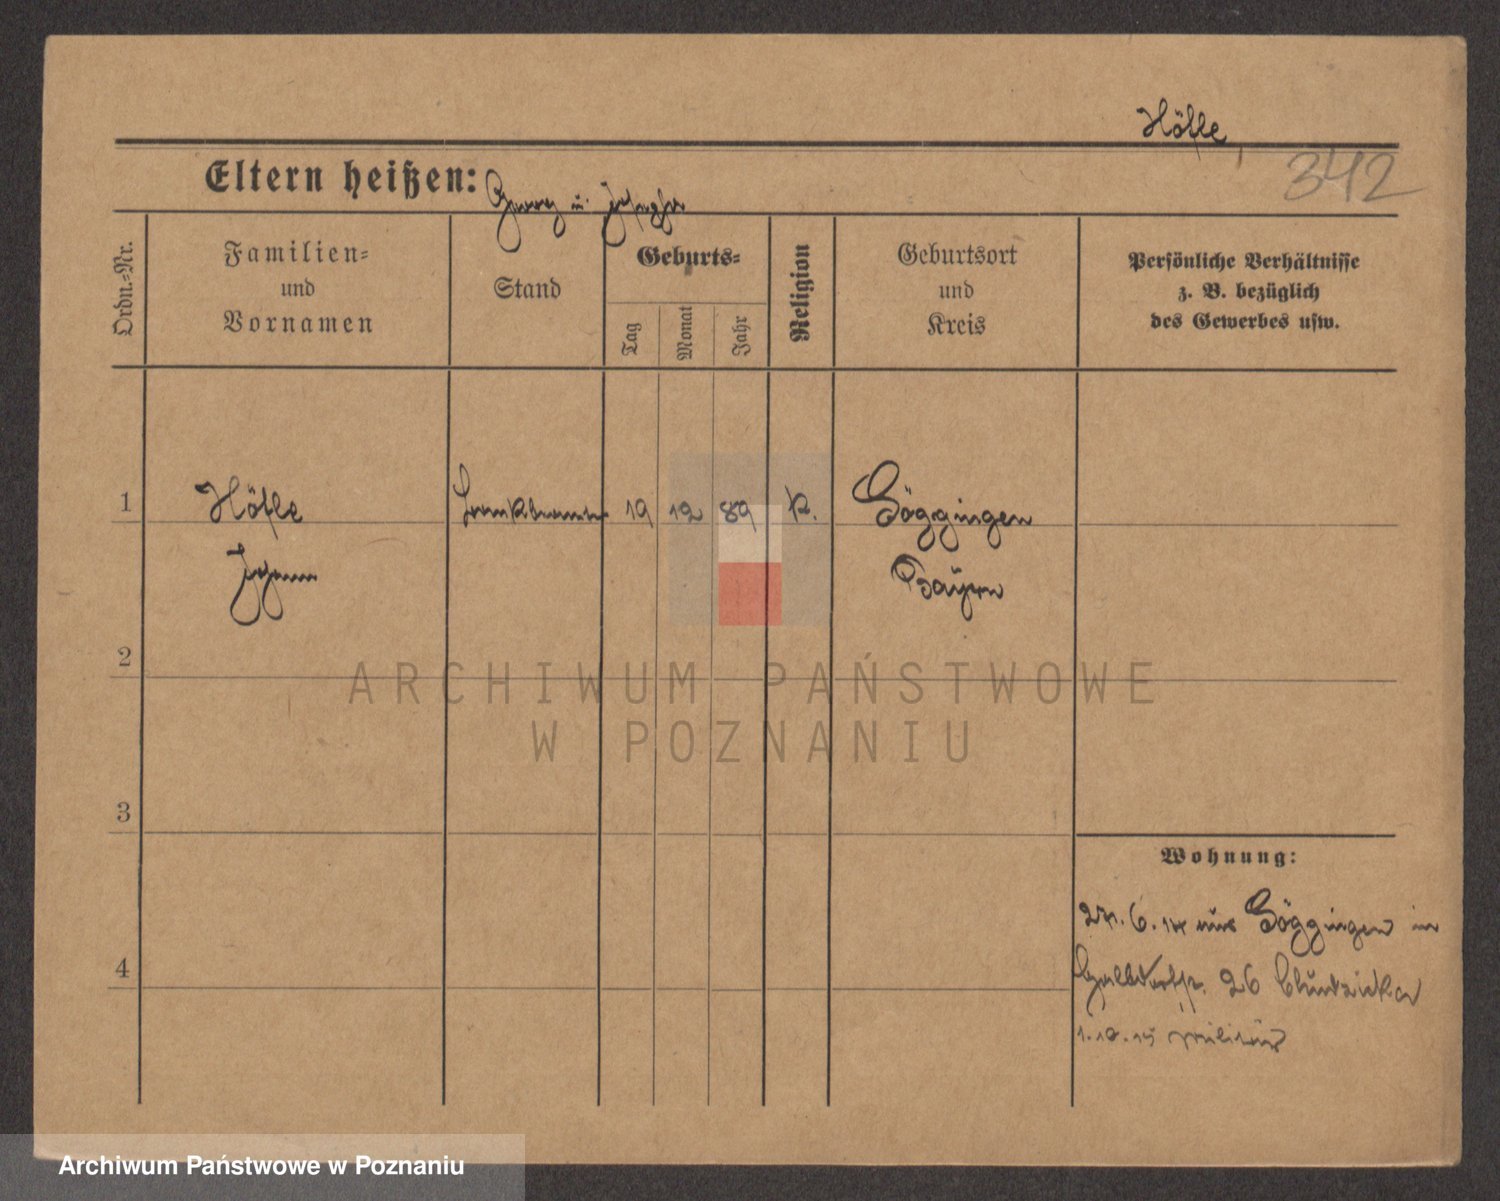 Höfle,
342
Eltern heißen: Georg u. Josepha
Ordn.-Nr.
Familien-
und
Vornamen
Stand
Geburts-
Tag
Monat
Jahr
Religion
Geburtsort
und
Kreis
Persönliche Verhältnisse
z. B. bezüglich
des Gewerbes usw.
1 Höfle 19 12 89 k. Göggingen
Johann Bayern
2
ARCHIWUM PAŃSTWOWE
W POZNANIU
3
Wohnung:
27.6.14 aus Göggingen in
4
26 Chudzicka
1.10.15 Militär
Archiwum Państwowe w Poznaniu